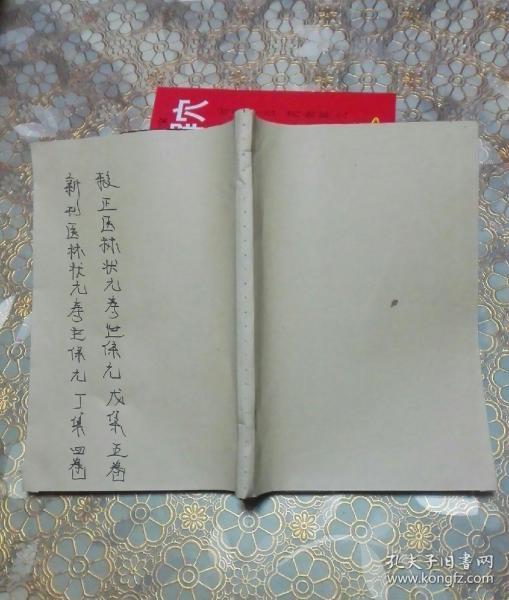 校正医林状元寿世保元 戊集五卷
新刊医林状元寿世保元 丁集四卷
孔夫子旧书网
www.kongfz.com